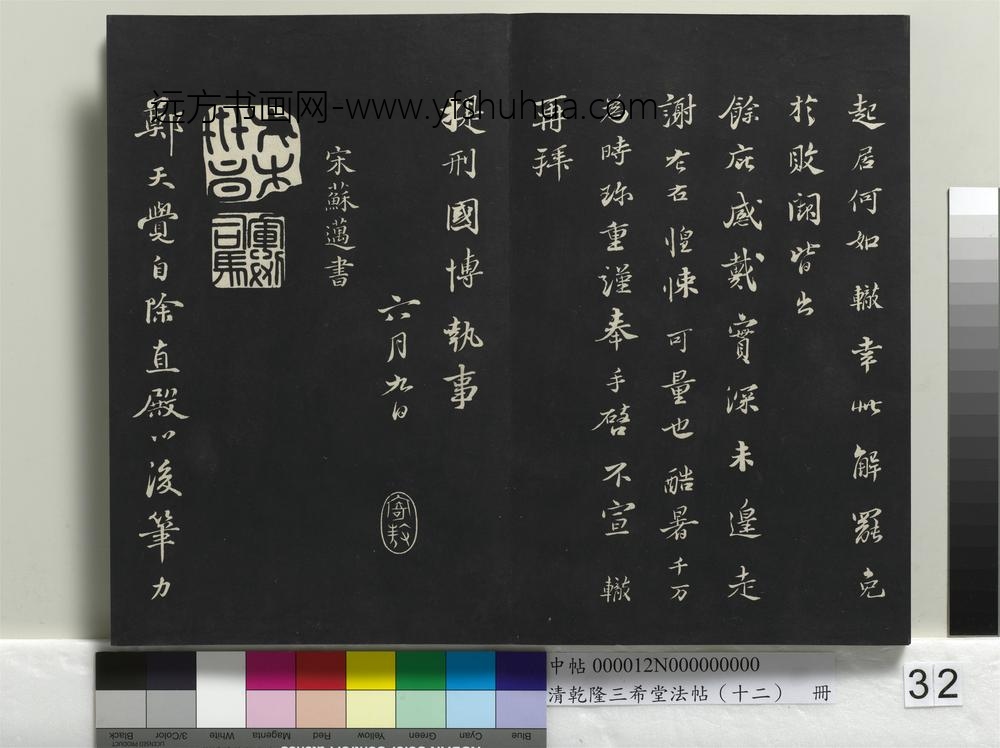 起居何如轍幸此解罷免
於敗闕皆出
餘庇感戴實深未遑走
謝左右惶悚可量也酷暑千万
為時珍重謹奉手啓不宣 轍
再拜
提刑國博執事
六月九日
宋蘇邁書
鄭天覺自除直殿以後筆力
远方书画网-www.yfshuhua.com
中帖 000012N000000000
清乾隆三希堂法帖（十二） 冊
32
Blue
Cyan
Green
Yellow
Red
Magenta
White
3/Color
Black
LICENSED PRODUCT